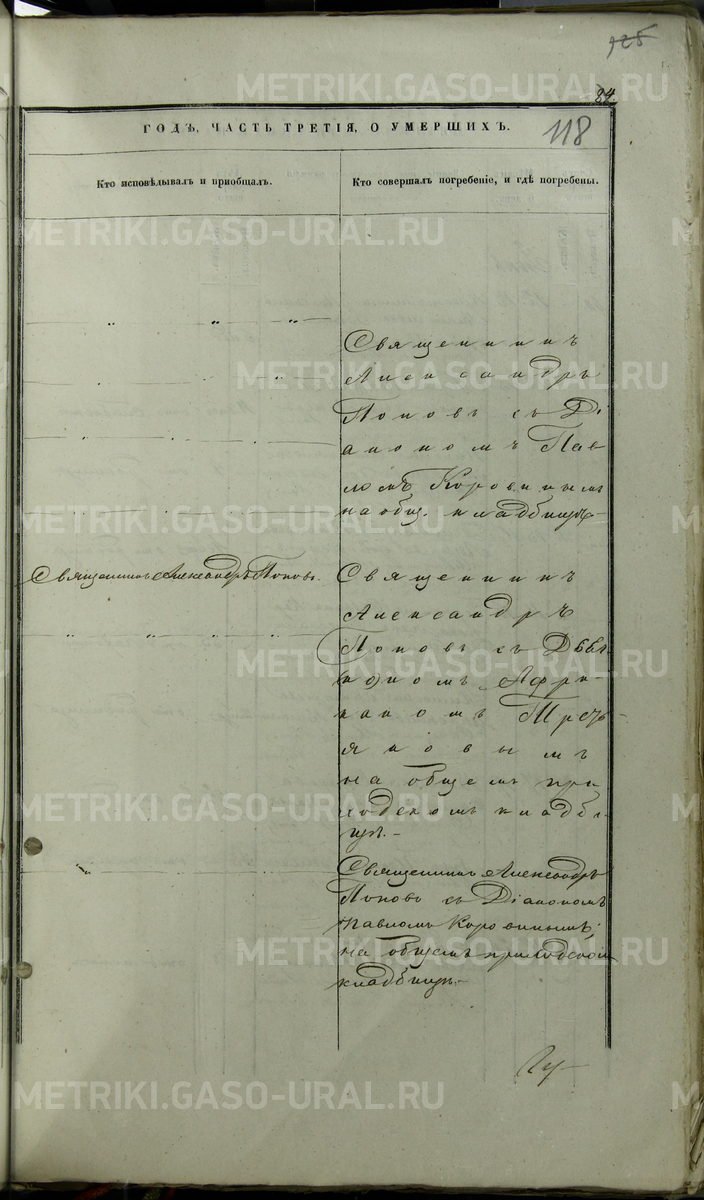 125
84
METRIKI.GASO-URAL.RU
ГОДЪ, ЧАСТЬ ТРЕТІЯ, О УМЕРШИХЪ.
118
Кто исповѣдывалъ и пріобщалъ.
Кто совершалъ погребеніе, и гдѣ погребены.
Священникъ
Александръ
Поповъ съ Ді
акономъ Пав
ломъ Коровинымъ
на общ. кладбищѣ
Священникъ Александръ Поповъ.
Священникъ
Александръ
Поповъ съ
Афри-
каномъ Трет
яковымъ
на общемъ при
ходскомъ кладби
щѣ.
Священникъ Александръ
Поповъ съ Діакономъ
Павломъ Коровинымъ,
на общемъ приходском
кладбищѣ.
METRIKI.GASO-URAL.RU